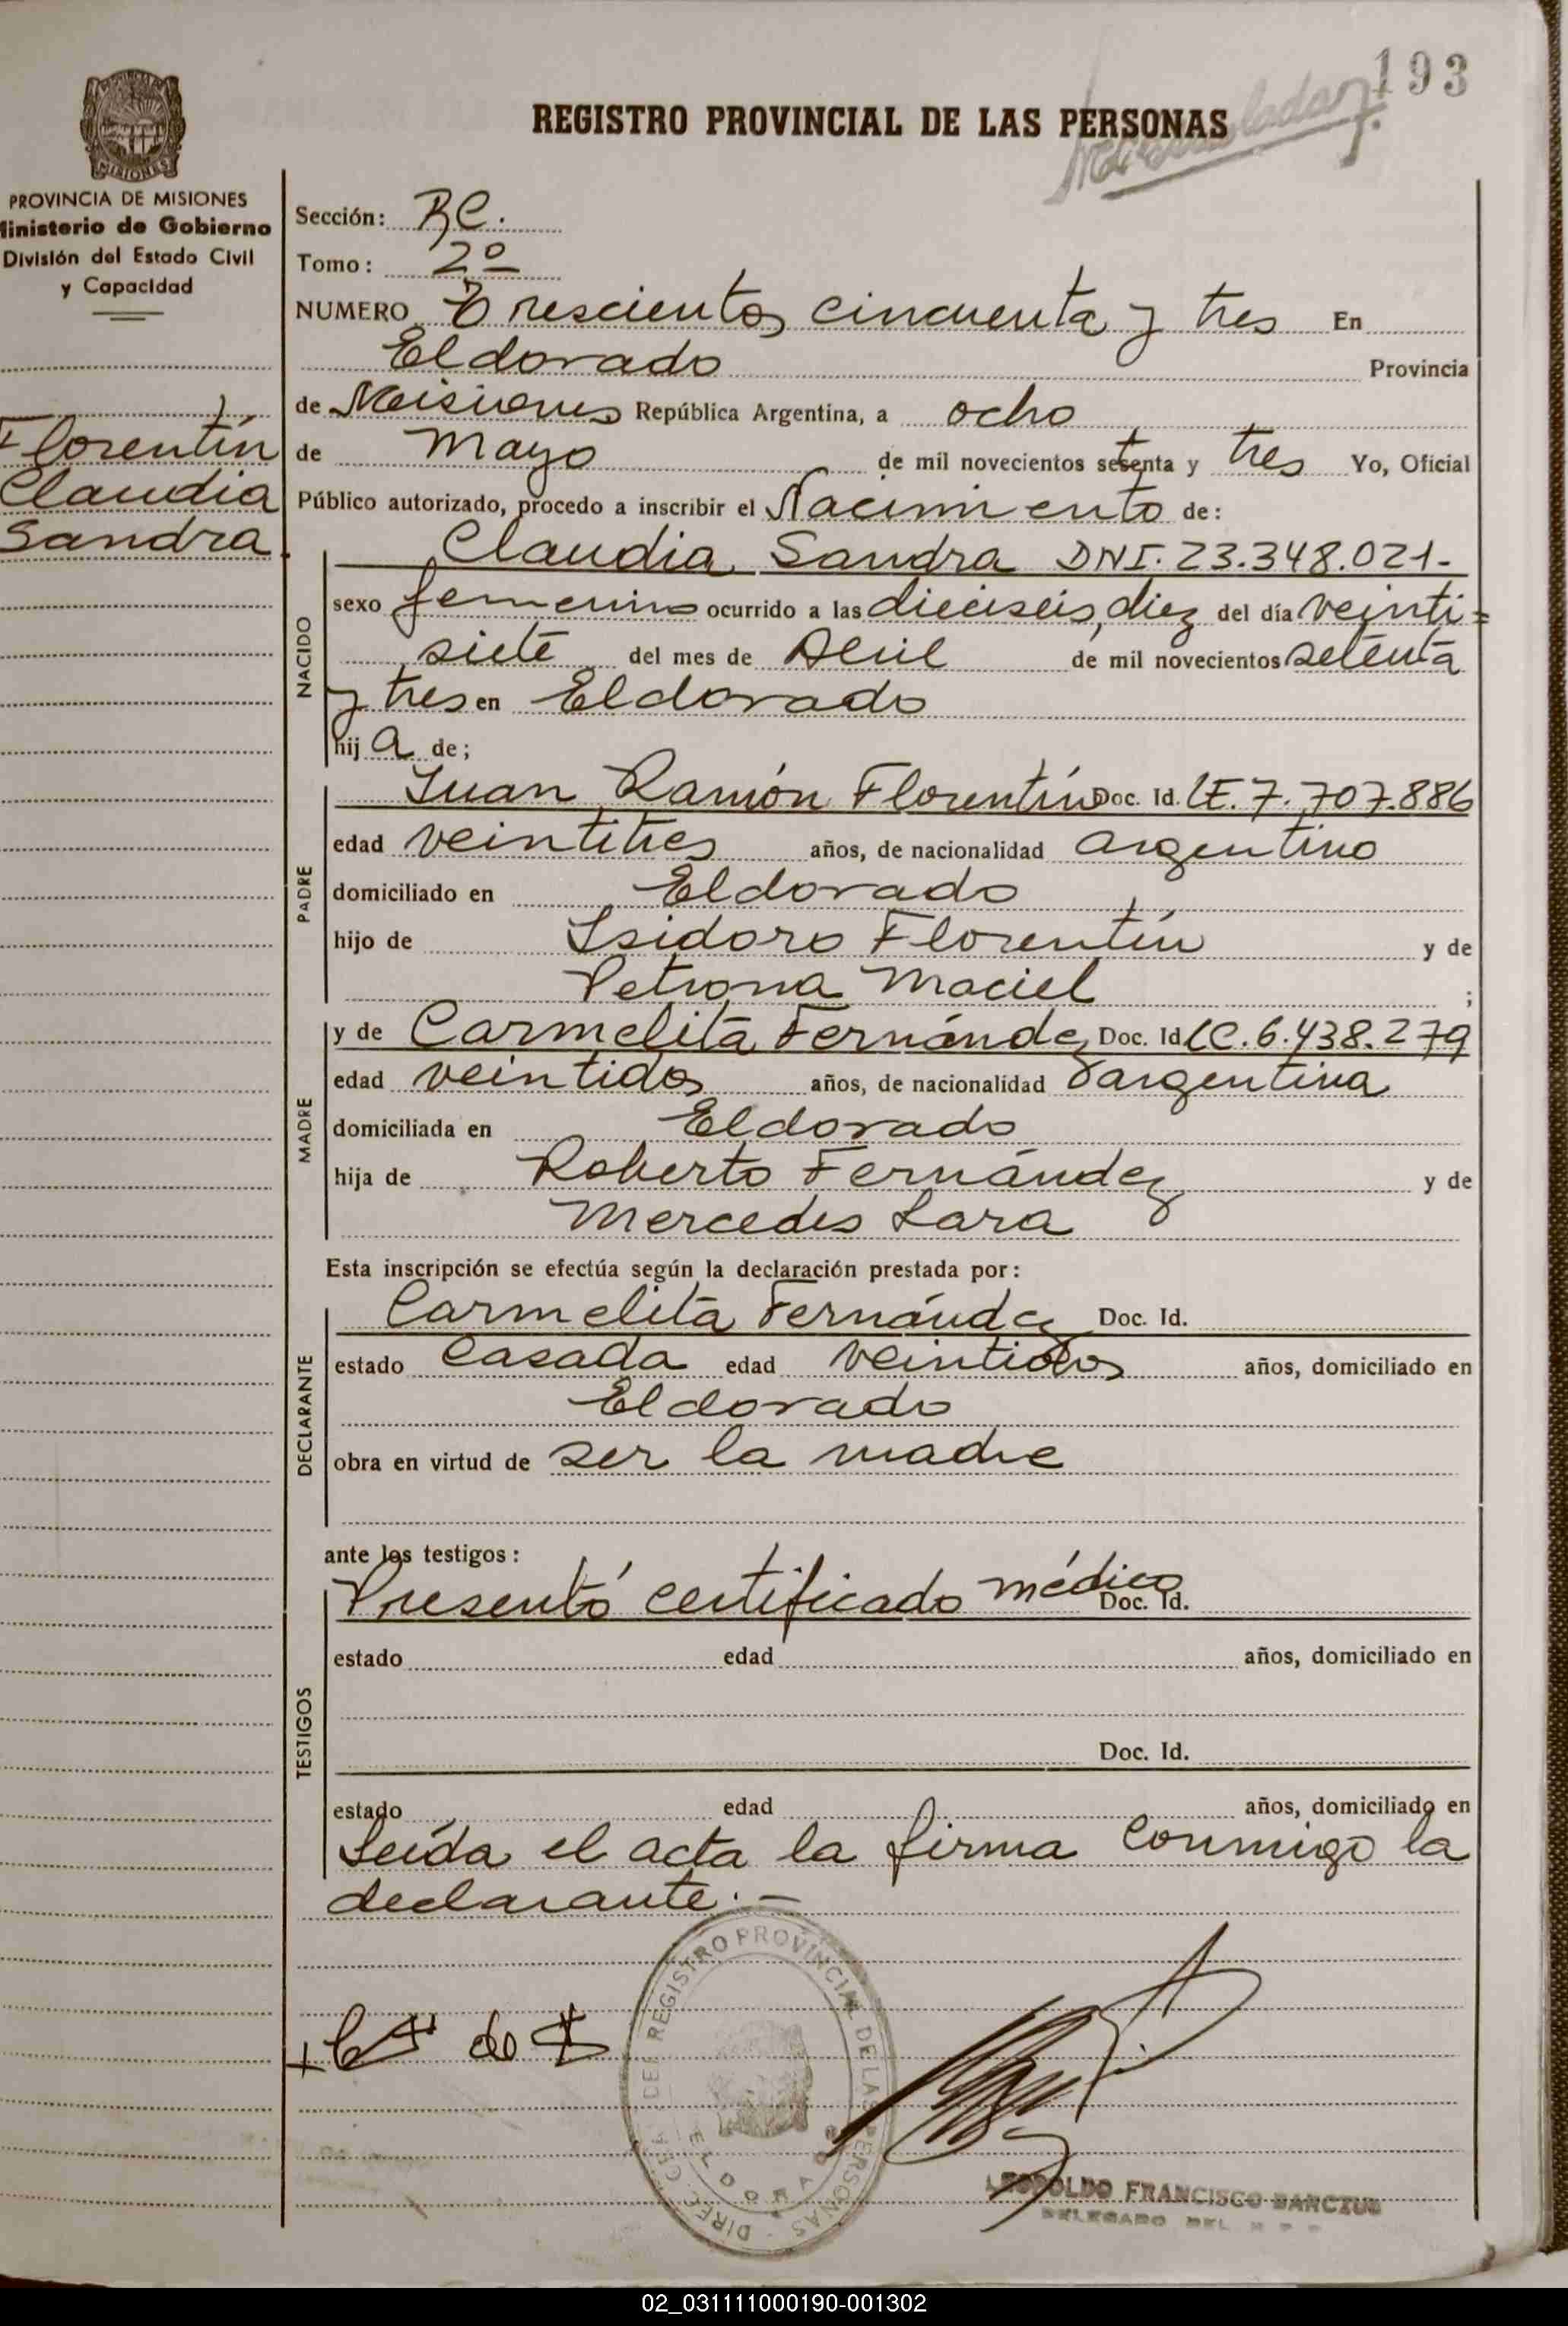 193
REGISTRO PROVINCIAL DE LAS PERSONAS
MISIONES
PROVINCIA DE MISIONES
Ministerio de Gobierno
División del Estado Civil
y Capacidad
Florentín
Claudia
Sandra.
Sección: RC.
Tomo: 2º
NUMERO Trescientos cincuenta y tres En
Eldorado Provincia
de Misiones República Argentina, a ocho
de Mayo de mil novecientos setenta y tres Yo, Oficial
Público autorizado, procedo a inscribir el Nacimiento de:
NACIDO
Claudia Sandra DNI. 23.348.021-
sexo femenino ocurrido a las dieciseis, diez del día veinti=
siete del mes de Abril de mil novecientos setenta
y tres en Eldorado
hij a de;
PADRE
Juan Ramón Florentín Doc. Id. LE. 7.707.886
edad veintitres años, de nacionalidad argentino
domiciliado en Eldorado
hijo de Isidoro Florentín y de
Petrona Maciel ;
MADRE
y de Carmelita Fernández Doc. Id LC. 6.438.279
edad veintidos años, de nacionalidad argentina
domiciliada en Eldorado
hija de Roberto Fernández y de
Mercedes Lara
Esta inscripción se efectúa según la declaración prestada por:
DECLARANTE
Carmelita Fernández Doc. Id.
estado Casada edad veintidos años, domiciliado en
Eldorado
obra en virtud de ser la madre
ante los testigos:
TESTIGOS
Presentó certificado médico Doc. Id.
estado edad años, domiciliado en
Doc. Id.
estado edad años, domiciliado en
Leída el acta la firma conmigo la
declarante.-
REGISTRO PROVINCIAL DE LAS PERSONAS
ELDORADO
LEOPOLDO FRANCISCO
DELEGADO DEL
02_031111000190-001302